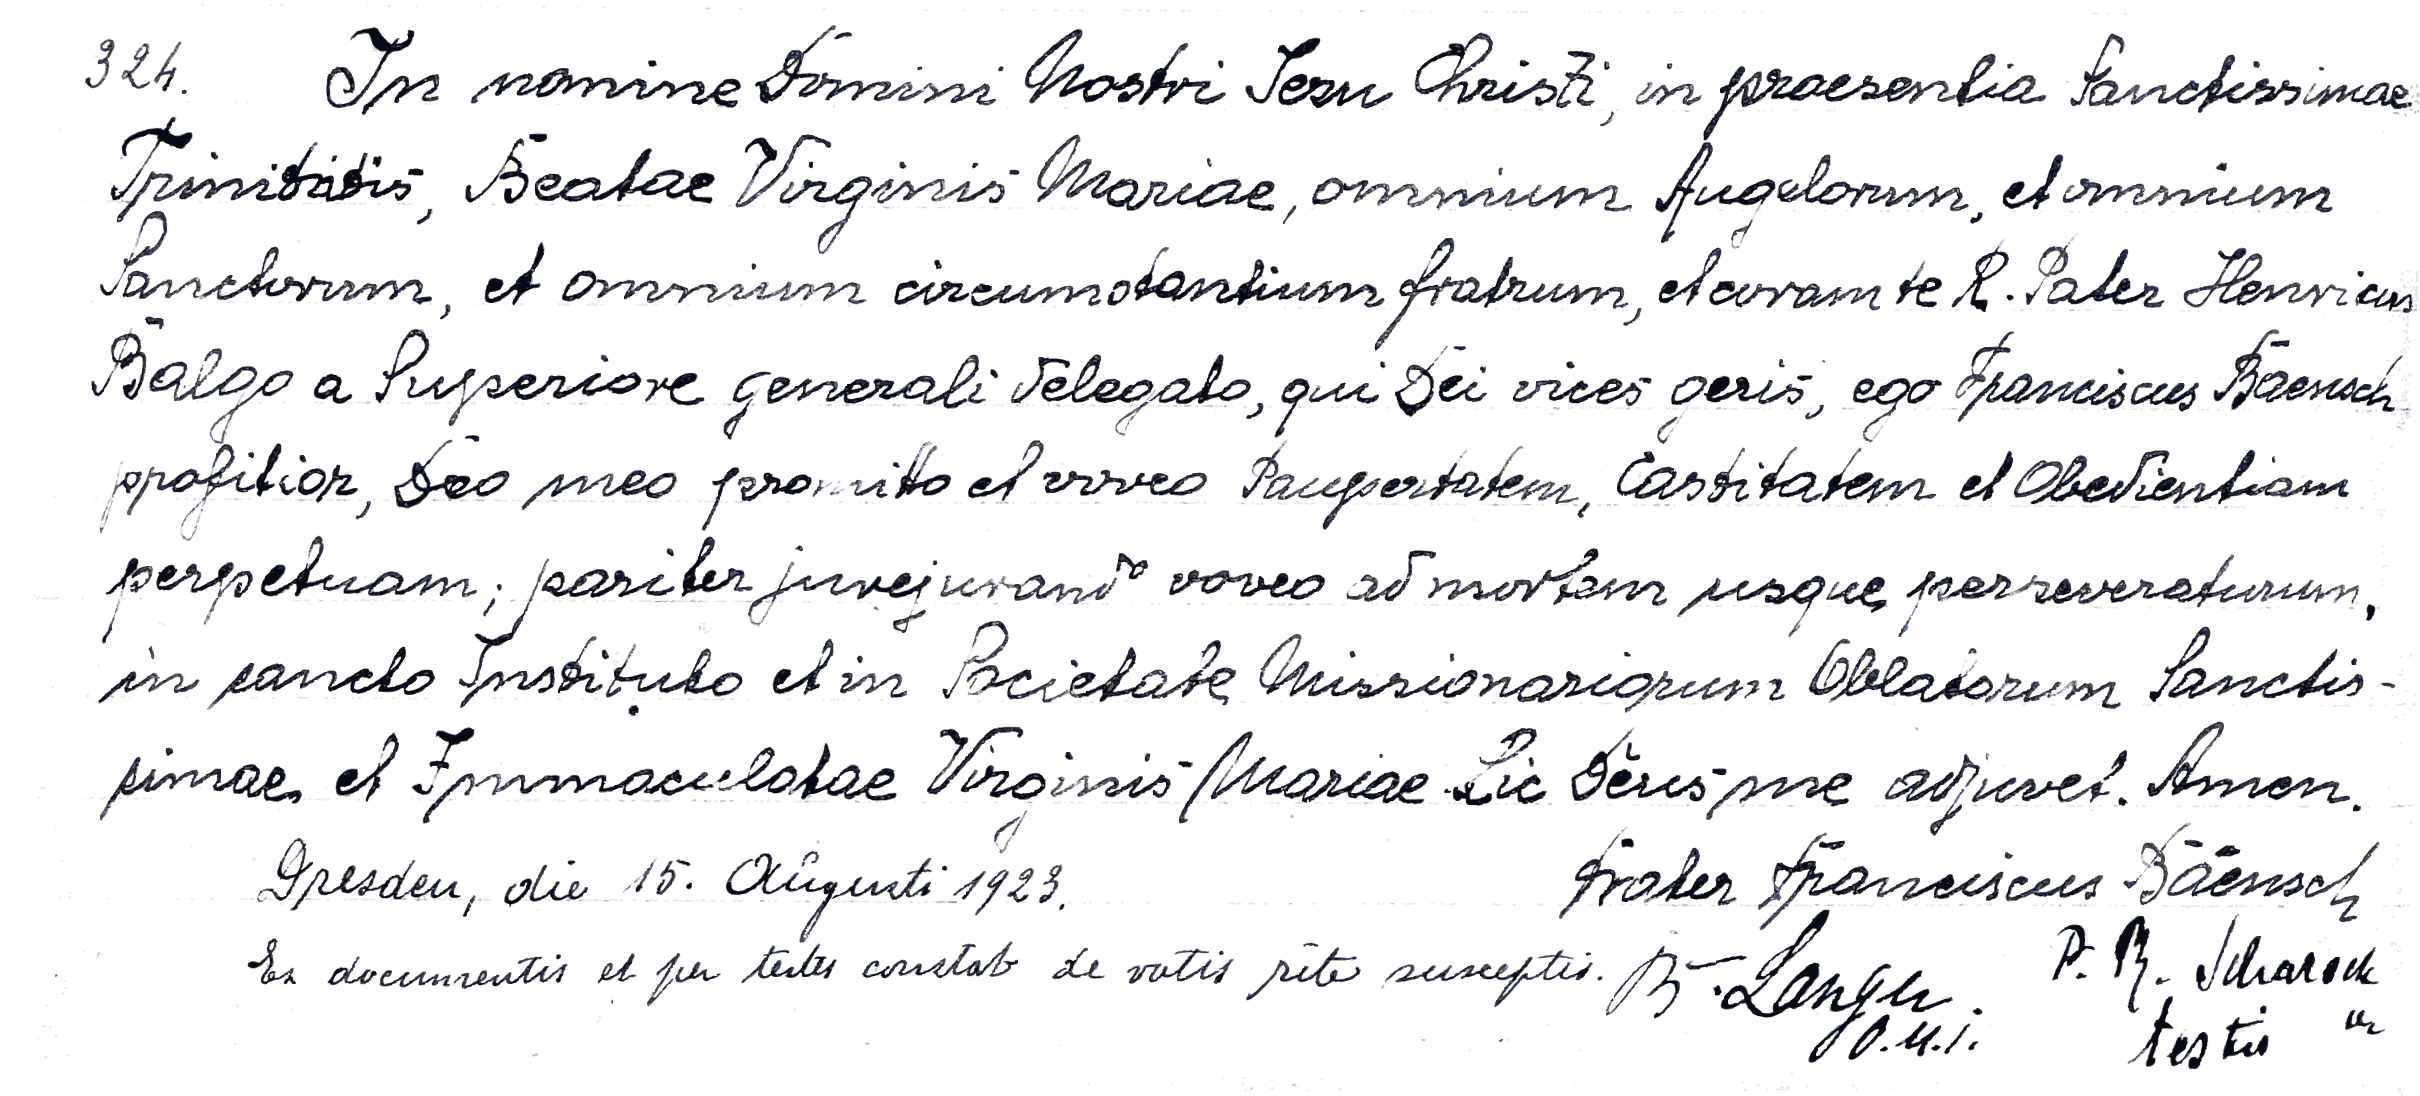 324. In nomine Domini Nostri Jesu Christi, in praesentia Sanctissimae
Trinitatis, Beatae Virginis Mariae, omnium Angelorum, et omnium
Sanctorum, et omnium circumstantium fratrum, et coram te R. Pater Henricus
Balgo a Superiore generali delegato, qui Dei vices geris, ego Franciscus Baensch
profitior, Deo meo promitto et voveo Paupertatem, Castitatem et Obedientiam
perpetuam; pariter jurejurando voveo ad mortem usque perseveraturum,
in sancto Instituto et in Societate Missionariorum Oblatorum Sanctis-
simae et Immaculatae Virginis Mariae. Sic Deus me adjuvet. Amen.
Dresden, die 15. Augusti 1923. Frater Franciscus Baensch
Ex documentis et per testes constat de votis rite susceptis. P. R. Scharock
Langer
O.M.I. testis